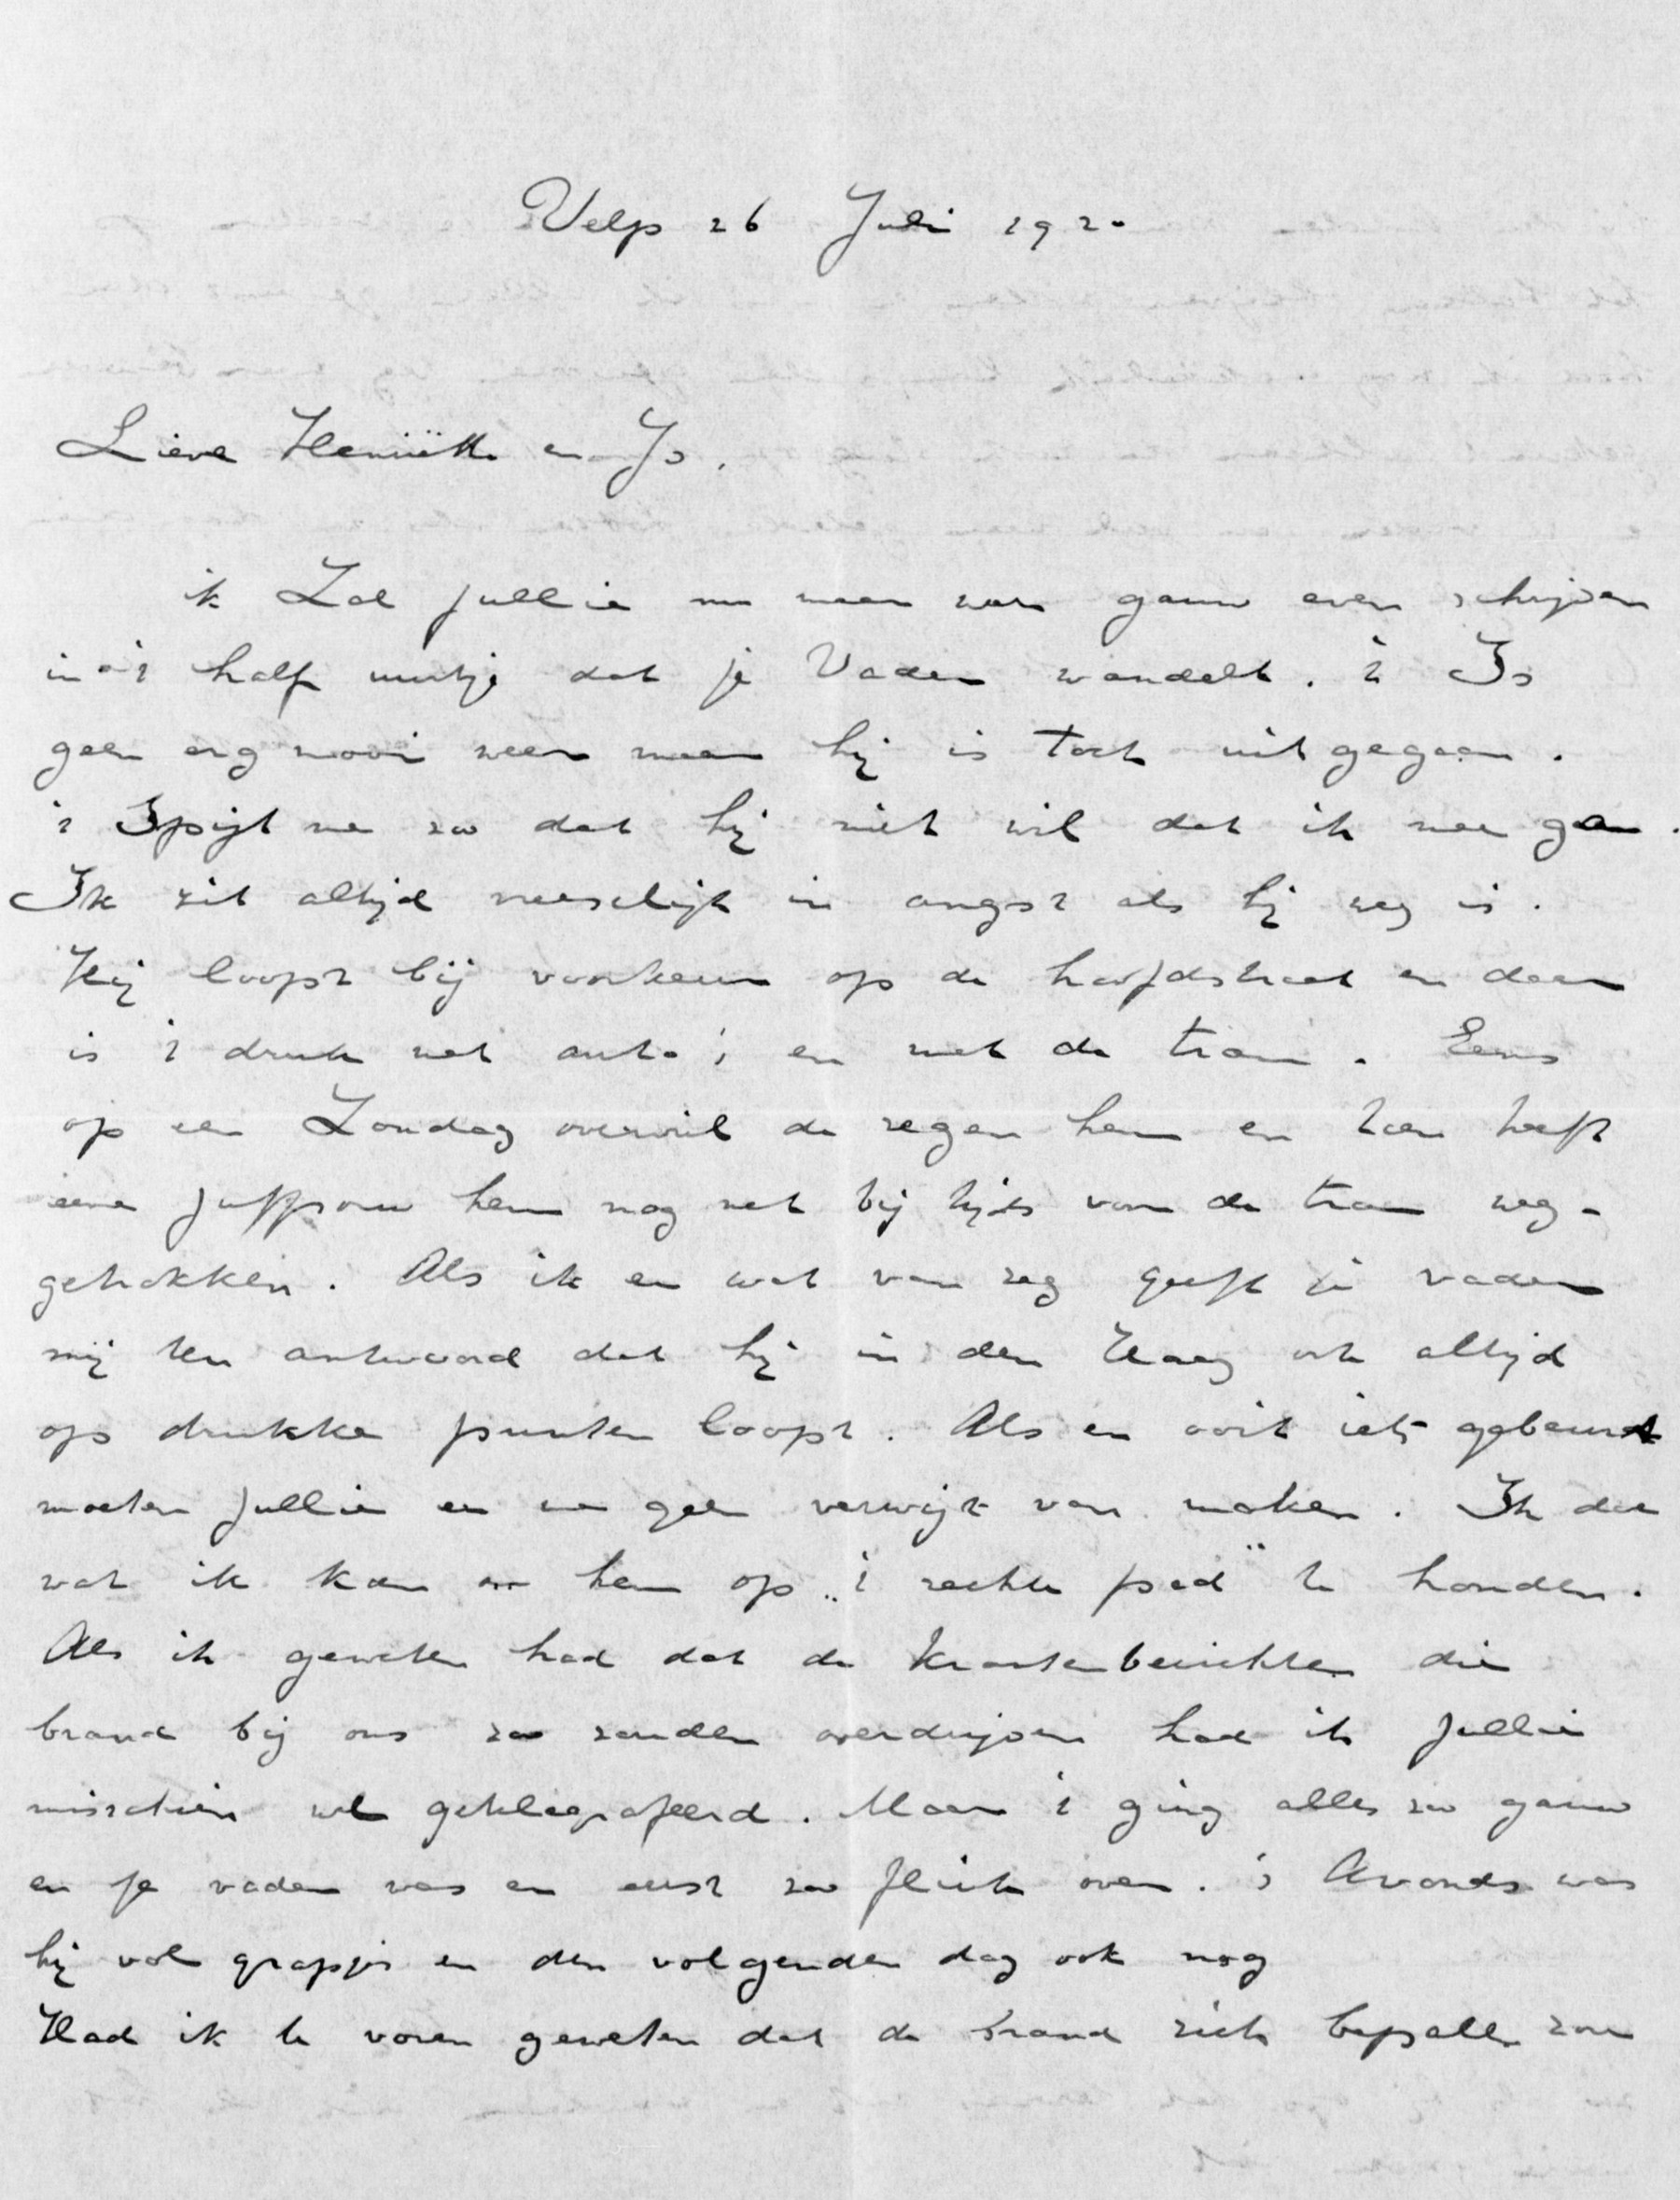 Velp 26 Juli 1920
Lieve Henriëtte en Jo.
ik Zal jullie nu maar gauw even schrijven
in 't half uurtje dat je Vader wandelt. 't Is
geen erg mooi weer maar hij is toch uitgegaan.
't Spijt me zoo dat hij niet wil dat ik mee ga.
Ik zit altijd vreeselijk in angst als hij weg is.
Hij loopt bij voorkeur op de hoofdstraat en daar
is 't druk met auto's en met de tram. Eens
op een Zondag overviel de regen hem en toen heeft
eene juffrouw hem nog net bij tijds van de tram weg-
getrokken. Als ik er wat van zeg geeft je vader
mij ten antwoord dat hij in den Haag ook altijd
op drukke punten loopt. Als er ooit iets gebeurt
moeten jullie er me geen verwijt van maken. Ik doe
wat ik kan om hem op „'t rechte pad" te houden.
Als ik geweten had dat de krantenberichten die
brand bij ons zoo zouden overdrijven had ik jullie
misschien wel getelegrafeerd. Maar 't ging alles zoo gauw
en je vader was er eerst zoo flink over. 's Avonds was
hij vol grapjes en den volgenden dag ook nog
Had ik te voren geweten dat de brand zich bepalen zou